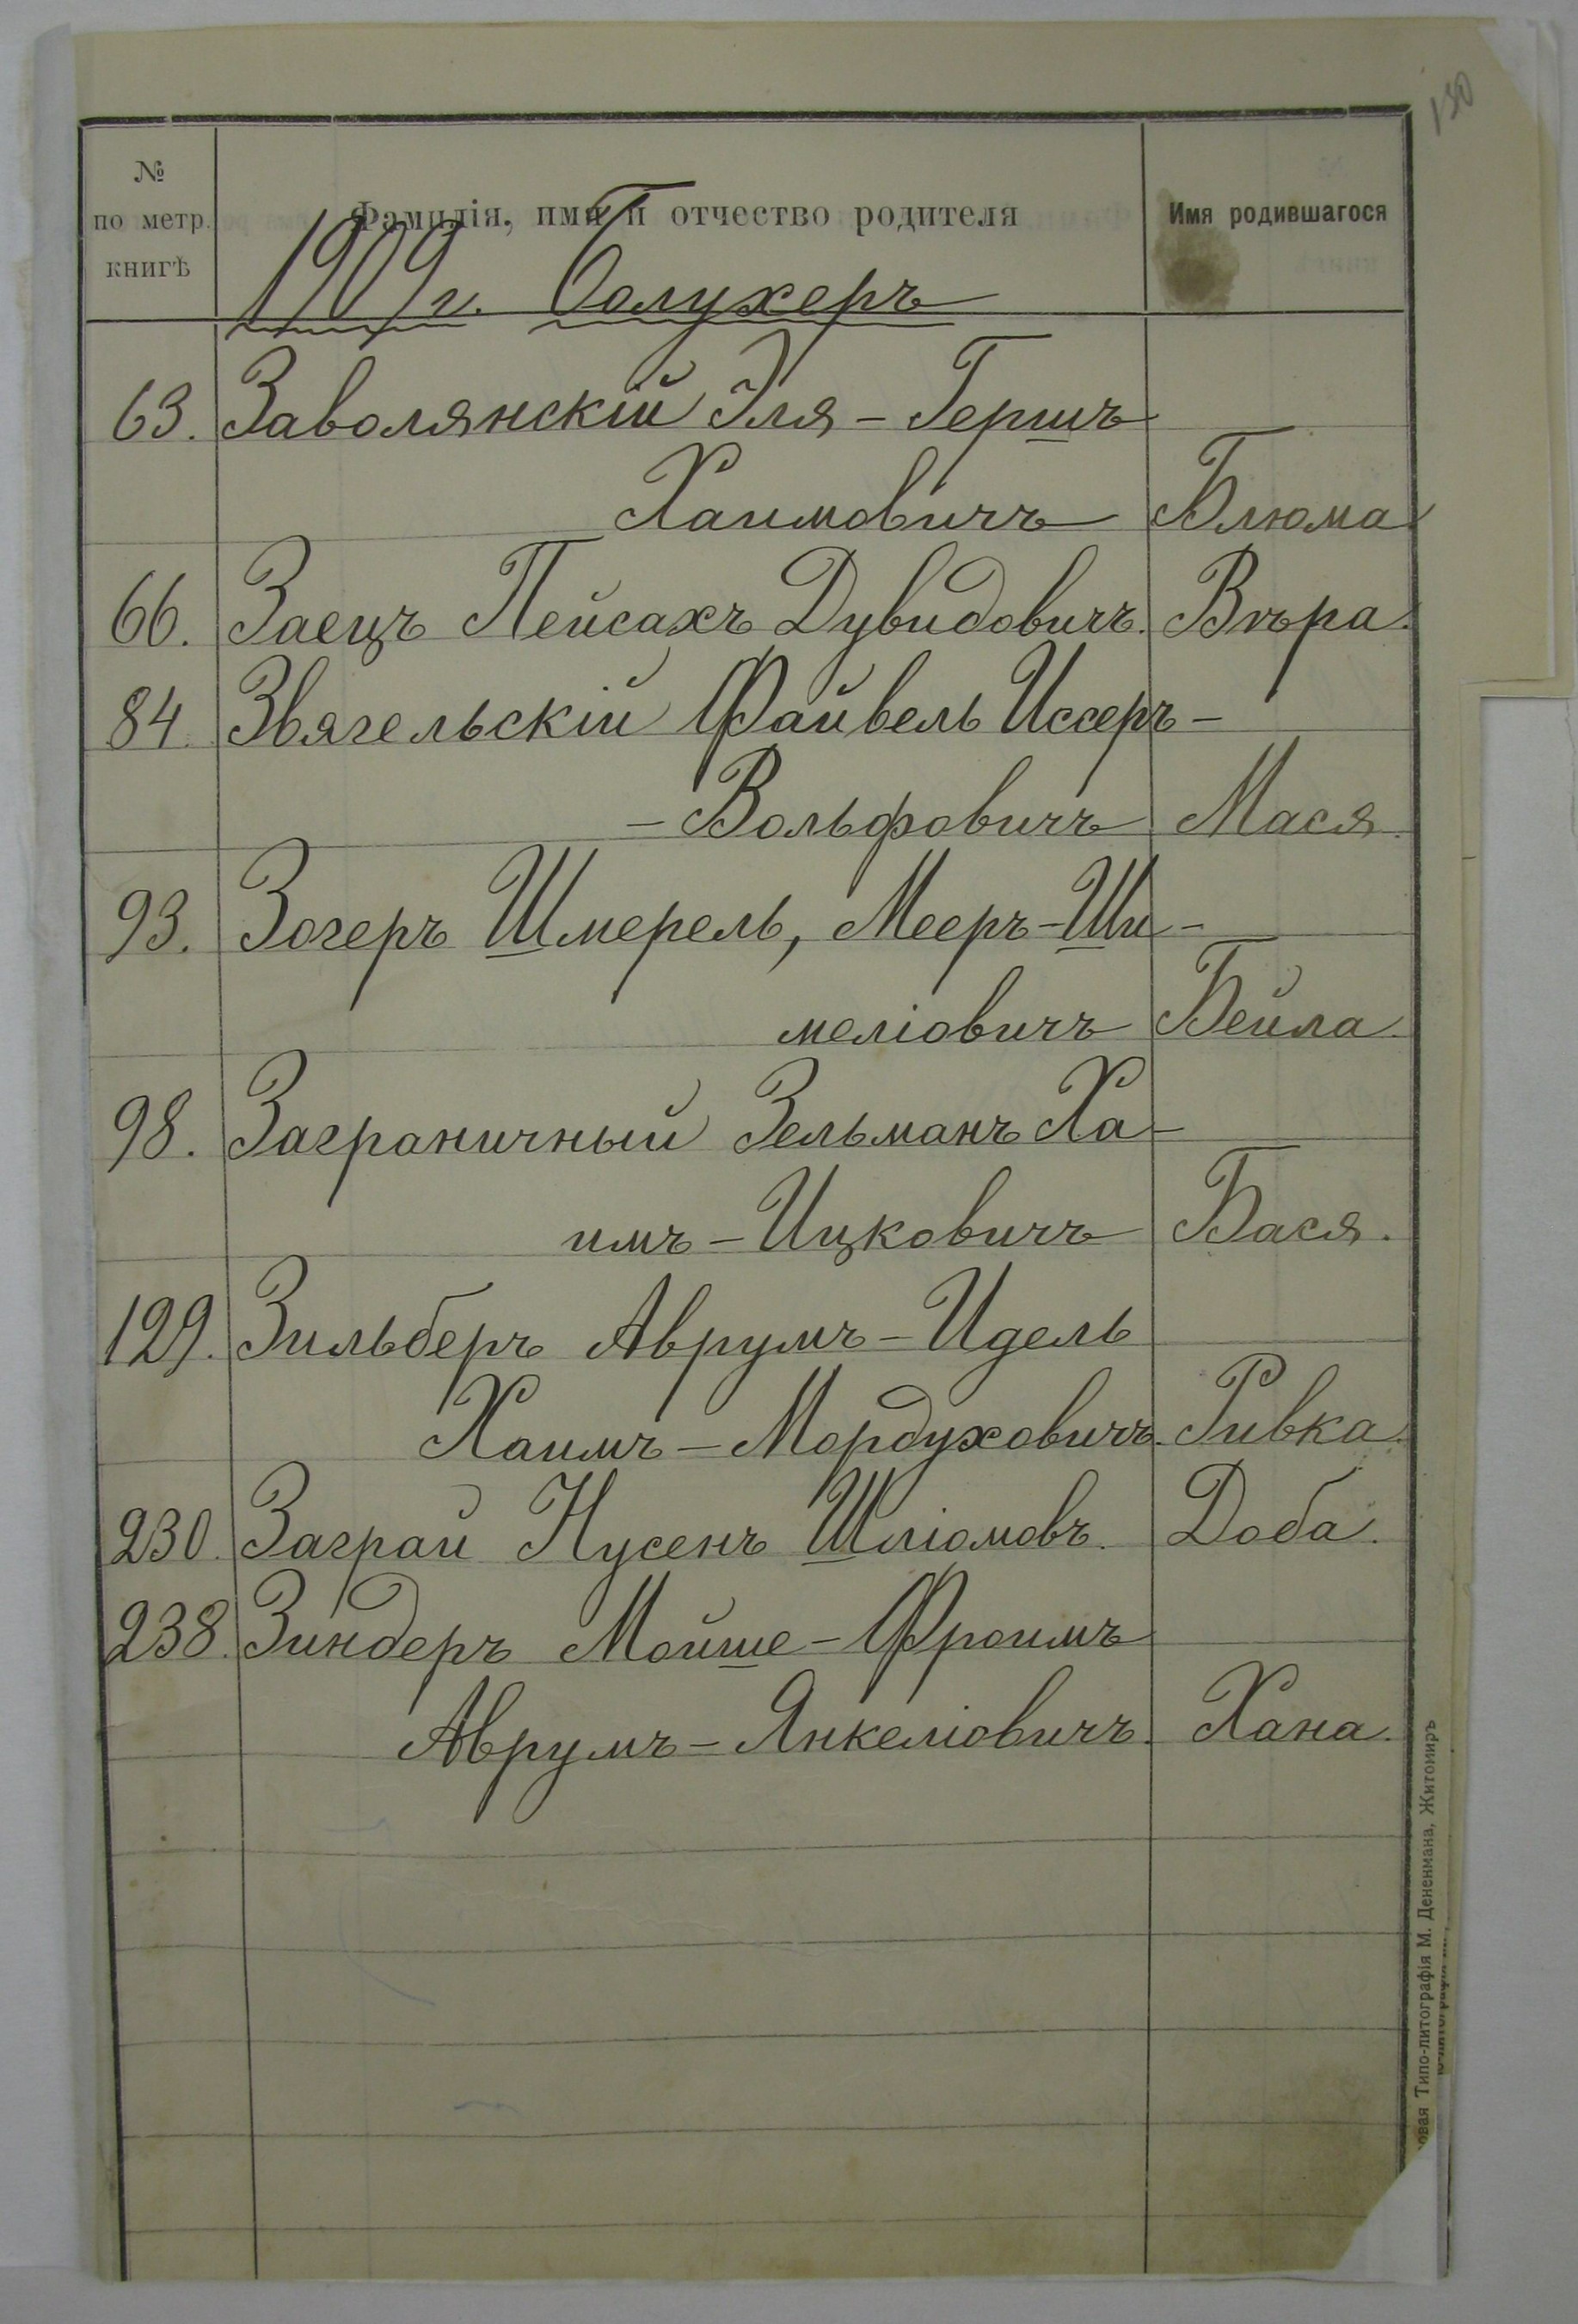 130
№
по метр.
книгѣ
Фамилія, имя и отчество родителя
Имя родившагося
1909 г.
63. Заволянскій Эля-Гершъ
Хаимовичъ Блюма
66. Заецъ Пейсахъ Дувидовичъ. Вѣра.
84. Звягельскій Файвель Иссеръ-
-Вольфовичъ Мася.
93. Зогеръ Шмерель, Мееръ-Ши-
меліовичъ Бейла.
98. Заграничный Зельманъ Ха-
имъ-Ицковичъ Бася.
129. Зильберъ Аврумъ-Идель
Хаимъ-Мордуховичъ. Ривка.
230. Заграй Нусенъ Шліомовъ. Доба.
238. Зиндеръ Мойше-Фроимъ
Аврумъ-Янкеліовичъ. Хана.
овая Типо-литографія М. Дененмана, Житомиръ